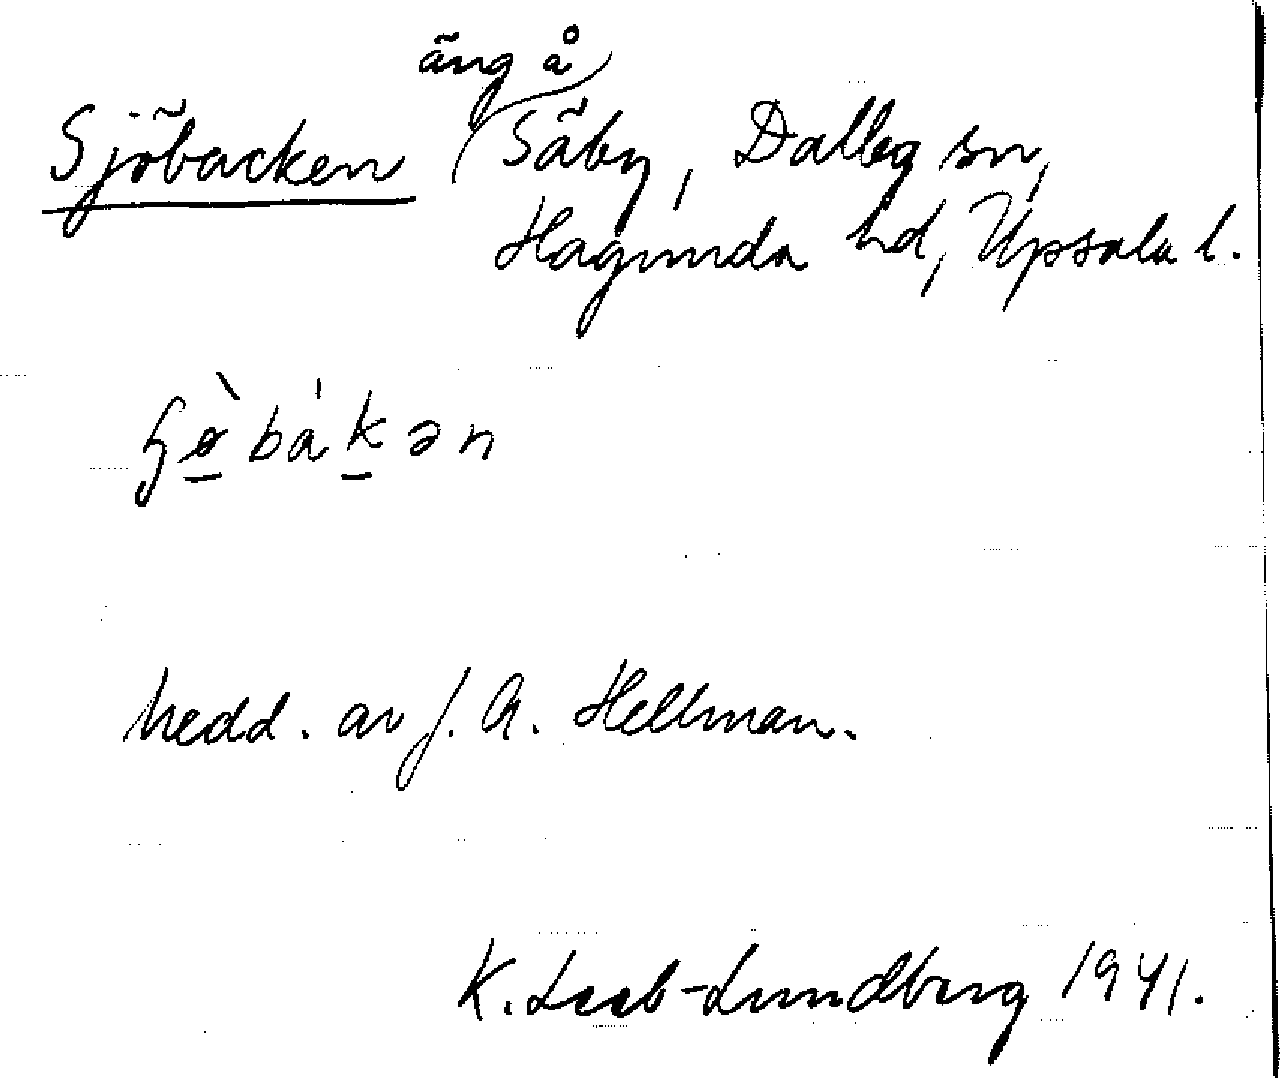 äng å
Sjöbacken Säby, Dalby sn,
Hagunda hd, Upsala l.
ɧø̠̀bák̠ən
Medd. av J. A. Hellman.
K. Leeb-Lundberg 1941.